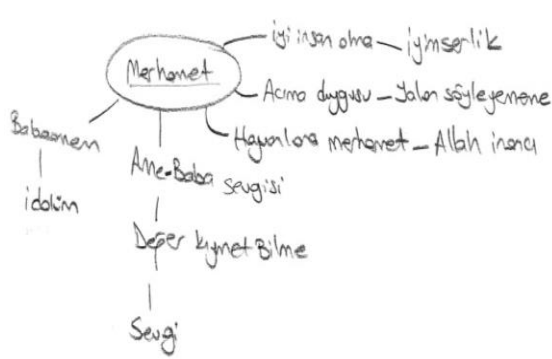 Merhamet
iyi insan olma – iyimserlik
Acıma duygusu – Yalan söyleyememe
Hayvanlara merhamet – Allah inancı
Babaannem
idolüm
Anne-Baba sevgisi
Değer kıymet Bilme
Sevgi